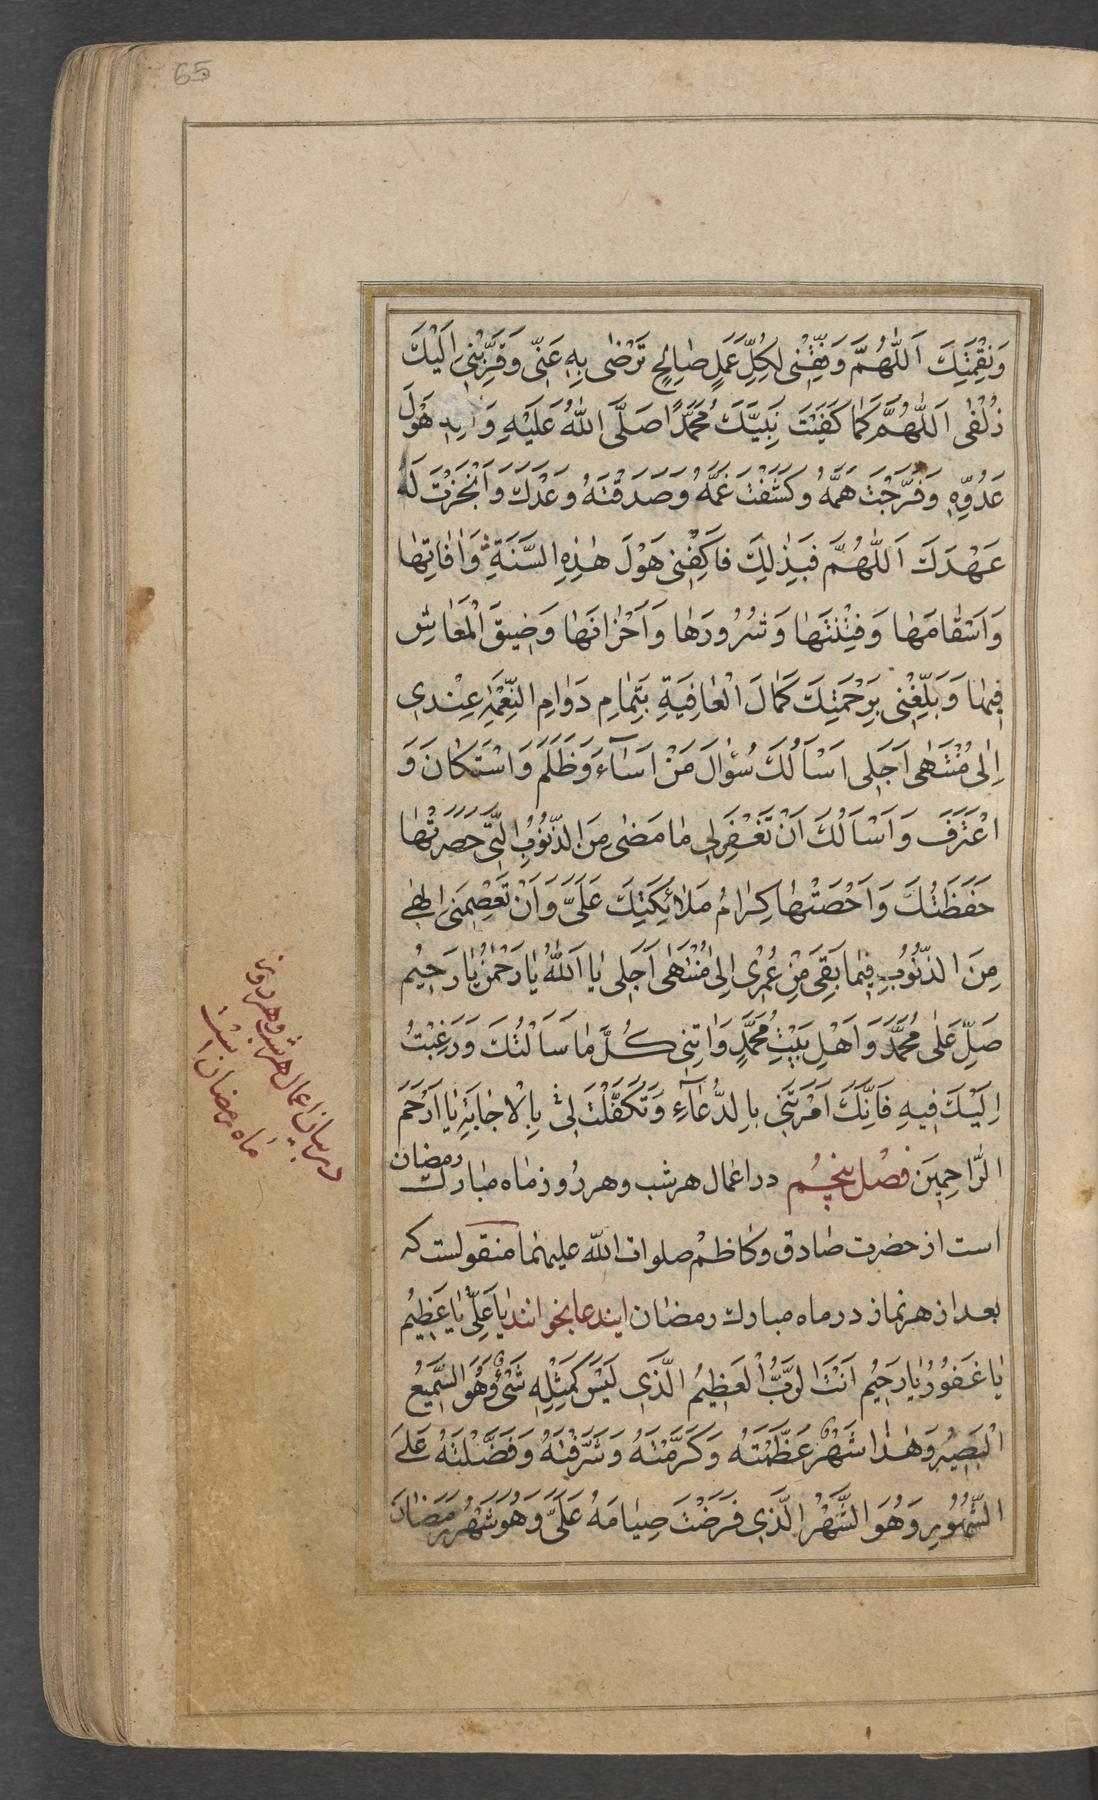 65
وَنِقْمَتِكَ اَللّٰهُمَّ وَفِّقْنى لِكُلِّ عَمَلٍ صٰالِحٍ تَرْضٰى بِهِ عَنّى وَقَرِّبْنى اِلَيْكَ
زُلْفٰى اَللّٰهُمَّ كَمٰا كَفَيْتَ نَبِيَّكَ مُحَمَّدًا صَلَّى اللّٰهُ عَلَيْهِ وَالِهِ هَوْلَ
عَدُوِّهِ وَفَرَّجْتَ هَمَّهُ وَكَشَفْتَ غَمَّهُ وَصَدَقْتَهُ وَعْدَكَ وَاَنْجَزْتَ لَهُ
عَهْدَكَ اَللّٰهُمَّ فَبِذٰلِكَ فَاكْفِنى هَوْلَ هٰذِهِ السَّنَةِ وَاٰفٰاتِهٰا
وَاَسْقٰامَهٰا وَفِتْنَتَهٰا وَشُرُورَهٰا وَاَحْزٰانَهٰا وَضيقَ الْمَعٰاشِ
فيهٰا وَبَلِّغْنى بِرَحْمَتِكَ كَمٰالَ الْعٰافِيَةِ بِتَمٰامِ دَوٰامِ النِّعْمَةِ عِنْدى
اِلٰى مُنْتَهٰى اَجَلى اَسْاَلُكَ سُؤٰالَ مَنْ اَسٰاءَ وَظَلَمَ وَاسْتَكٰانَ وَ
اعْتَرَفَ وَاَسْاَلُكَ اَنْ تَغْفِرَلى مٰا مَضٰى مِنَ الذُّنُوبِ الَّتى حَصَرَتْهٰا
حَفَظَتُكَ وَاَحْصَتْهٰا كِرٰامُ مَلٰائِكَتِكَ عَلَىَّ وَاَنْ تَعْصِمَنى اِلٰهى
مِنَ الذُّنُوبِ فيمٰا بَقِىَ مِنْ عُمْرى اِلٰى مُنْتَهٰى اَجَلى يٰا اَللّٰهُ يٰا رَحْمٰنُ يٰا رَحيمُ
صَلِّ عَلٰى مُحَمَّدٍ وَاَهْلِ بَيْتِ مُحَمَّدٍ وَاٰتِنى كُلَّ مٰا سَاَلْتُكَ وَرَغِبْتُ
اِلَيْكَ فيهِ فَاِنَّكَ اَمَرْتَنى بِالدُّعٰاءِ وَتَكَفَّلْتَ لى بِالْاِجٰابَةِ يٰا اَرْحَمَ
الرّٰاحِمينَ فصل پنجم در اعمال هر شب و هر روز ماه مبارك رمضان
است از حضرت صادق وكاظم صلوات الله عليهما منقولست كه
بعد از هر نماز در ماه مبارك رمضان ايندعا بخوانند يٰا عَلِىُّ يٰا عَظيمُ
يٰا غَفُورُ يٰا رَحيمُ اَنْتَ الرَّبُّ الْعَظيمُ الَّذى لَيْسَ كَمِثْلِهِ شَىْءٌ وَهُوَ السَّميعُ
الْبَصيرُ وَهٰذٰا شَهْرٌ عَظَّمْتَهُ وَكَرَّمْتَهُ وَشَرَّفْتَهُ وَفَضَّلْتَهُ عَلَى
الشُّهُورِ وَهُوَ الشَّهْرُ الَّذى فَرَضْتَ صِيٰامَهُ عَلَىَّ وَهُوَ شَهْرُ رَمَضٰانَ
در بيان اعمال هر شب و هر روز
ماه رمضان است